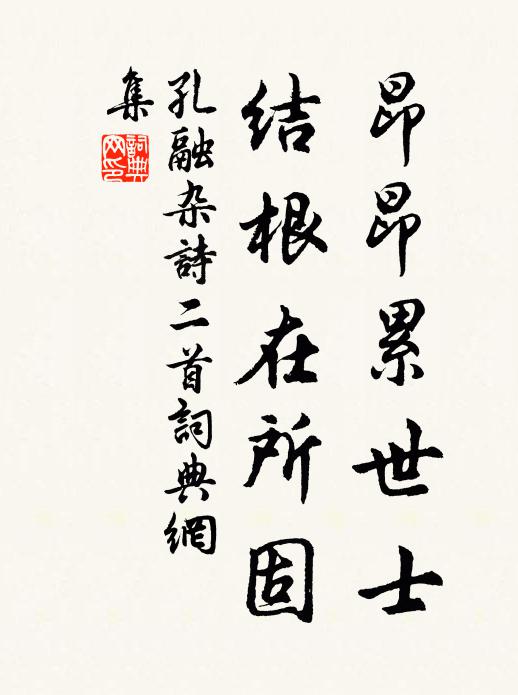 昂昂累世士
结根在所固
孔融杂詩二首詞典網
集
詞典网印